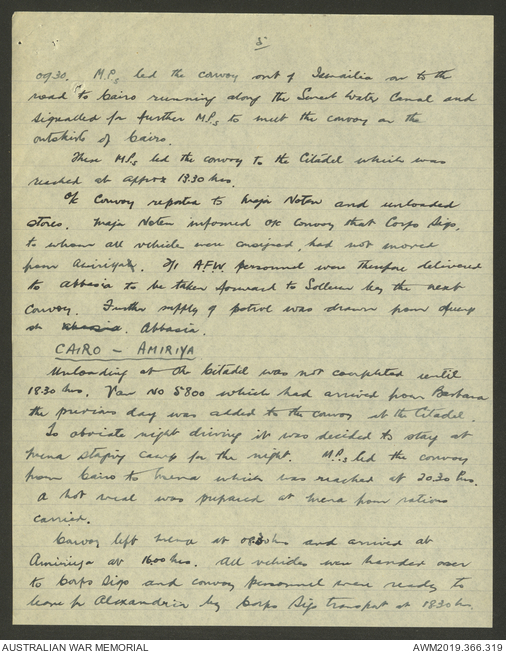 5
0930. M.Ps led the convoy out of Ismailia on to the
road to Cairo running along the Sweet Water Canal and
signalled for further M.Ps to meet the convoy on the
outskirts of Cairo.
These M.Ps led the convoy to the Citadel which was
reached at approx 13.30 hrs.
O/C Convoy reported to Major Noten and unloaded
stores. Major Noten informed O/C Convoy that Corps Sigs,
to whom all vehicles were consigned, had not moved
from Amiriya. A.F.W. personnel were therefore delivered
to Abbasia to be taken forward to Solleum by the next
convoy. Further supply of petrol was drawn from
at Abbasia.
CAIRO - AMIRIYA
Unloading at the Citadel was not completed until
18.30 hrs. Van No 5800 which had arrived from Barbara
the previous day was added to the convoy at the Citadel.
To obviate night driving it was decided to stay at
Mena staging camp for the night. M.Ps led the convoy
from Cairo to Mena which was reached at 20.30 hrs.
A hot meal was prepared at Mena from rations
carried.
Convoy left Mena at hrs and arrived at
Amiriya at 1600 hrs. All vehicles were handed over
to Corps Sigs and convoy personnel were ready to
leave for Alexandria by Corps Sigs transport at 1830 hrs.
AUSTRALIAN WAR MEMORIAL
AWM2019.366.319